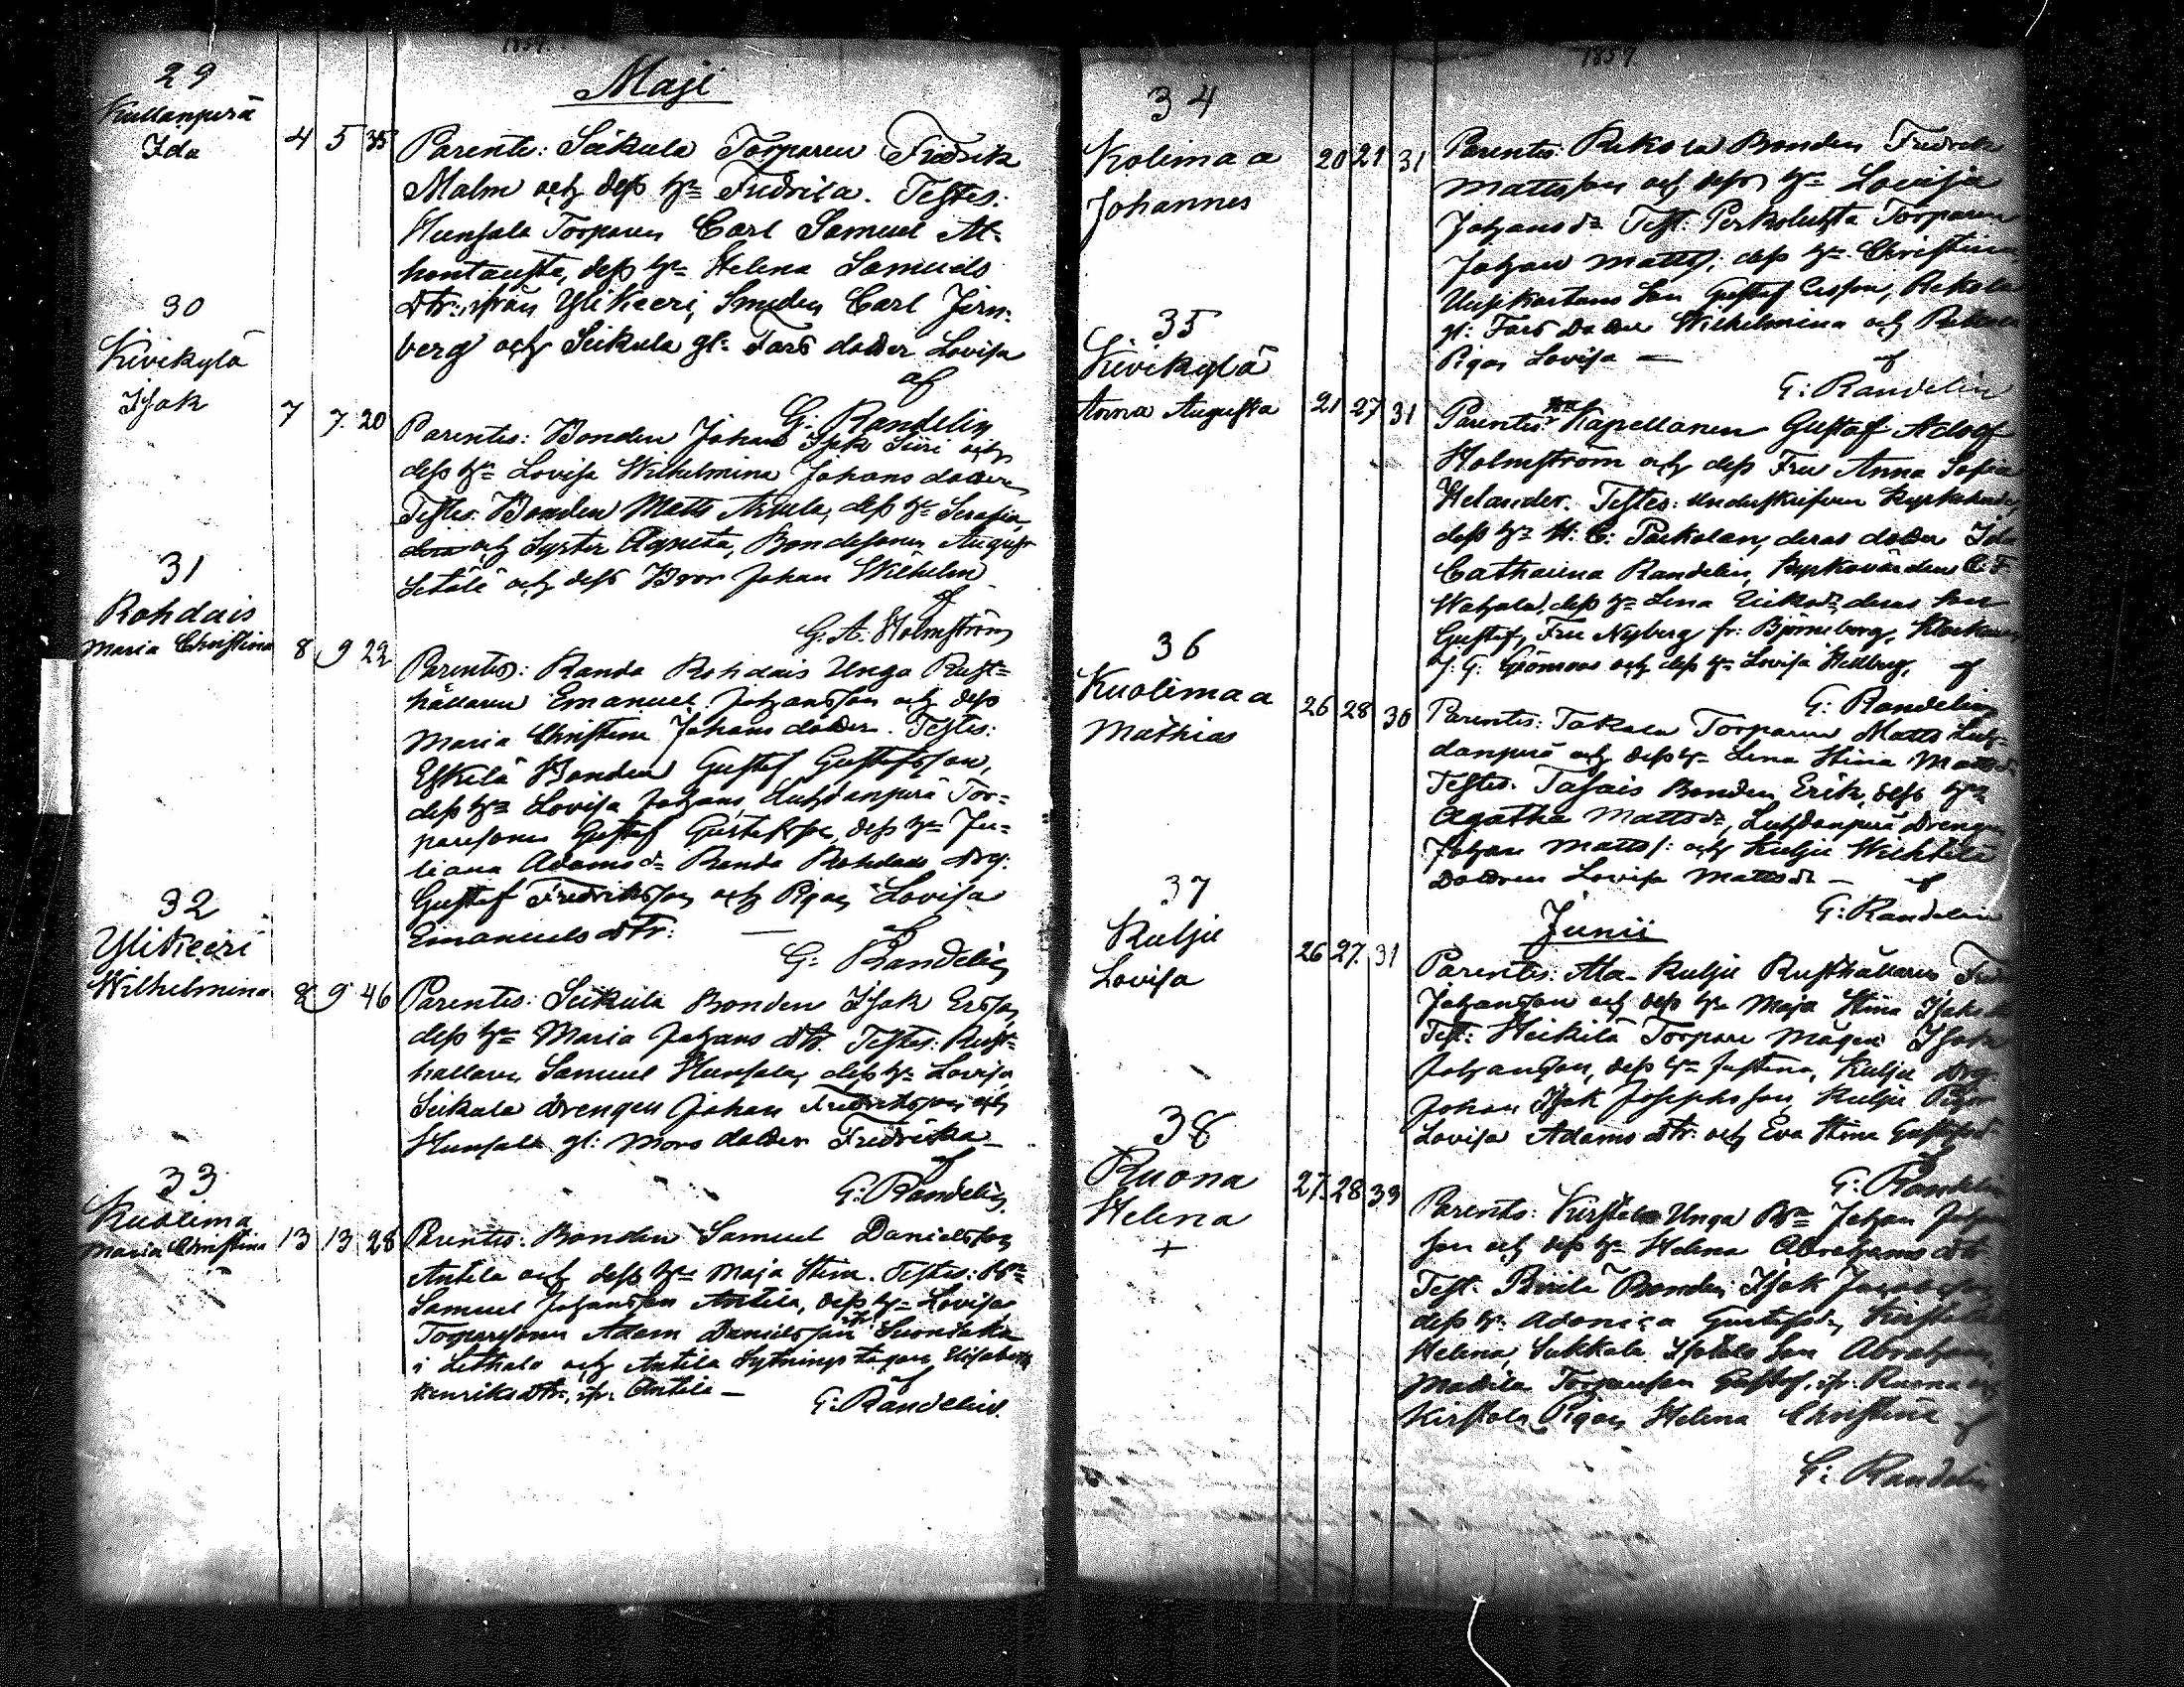 Maji
29
Kullanperä
Ida 4 5 35
Parente: Seikula Torparen Fredrik
Malm och dess h: Fredrica. Testes:
Hunsala Torparen Carl Samuel Al-
hontausta, dess h: Helena Samuels
dtr: ifrån Ylikeeri, Smeden Carl Jern-
berg och Seikula gl: Fars dotter Lovisa
af
G: Randelin
30
Kivikylä
Isak 7 7. 20
Parentes: Bonden Johan Isak Siiri och
dess h: Lovisa Wilhelmina Johans dotter
Testes: Bonden Matts dess h: Serafia
och Syster Agneta, Bondesonen August
Setälä och dess Bror Johan Wilhelm
af
G. A. Holmström
31
Rohdais
Maria Christina 8 9 22
Parentes: Randa Rohdais Unga Rust-
hållaren Emanuel Johansson och dess
Maria Christina Johans dotter. Testes:
Eskilä Bonden Gustaf Gustafsson,
dess h: Lovisa Johans, Luhdanperä Tor-
paresonen Gustaf Gustafsson, dess h: Ju-
liana Adams d: Randa Rohdais drg:
Gustaf Fredriksson och Pigan Lovisa
Emanuels dtr: —
af
G: Randelin
32
Ylikeeri
Wilhelmina 8 9 46
Parentes: Seikula Bonden Isak Ersson,
dess h: Maria Johans dtr. Testes: Rust-
hållaren Samuel Hunsala, dess h: Lovisa
Seikula drengen Johan Fredriksson och
Hunsala gl: Mors dotter Fredrika —
af
G: Randelin.
33.
Kuolima
Maria Christina 13 13 28
Parentes: Bonden Samuel Danielsson
Antila och dess h: Maja Stina. Testes: B:
Samuel Johansson Antila, dess h: Lovisa
Torparesonen Adam Danielsson Suontaka
i Lethala och Antila Sytningstagare Elisabeth
Henriks dtr: ifr: Antila —
af
G: Randelin.
1857
34
Kolimaa
Johannes 20 21 31
Parentes: Rekola Bonden Fredrik
Mattsson och dess h: Lovisa
Johans d: Test: Perkoluhta Torparen
Johan Matts: dess h: Christina,
Uusikartano Son Gustaf Ersson, Rekola
gl: Fars dotter Wilhelmina och Rekola
Pigan Lovisa —
af
G: Randelin
35
Kivikylä
Anna Augusta 21 27 31
Parentes: Kapellanen Gustaf Adolf
Holmström och dess Fru Anna Sofia
Helander. Testes: Underskrifven Kyrkoherde,
dess h: H: C: Paikolan, deras dotter Ida
Catharina Randelin, Kyrkovärden C: F
Wahala, dess h: Lena Eriks d: deras son
Gustaf, Fru Nyberg fr: Björneborg, Klockaren
J: G: Grönroos och dess h: Lovisa Hellberg,
af
G: Randelin
36
Kuolimaa
Mathias 26 28 36
Parentes: Takala Torparen Matts Luh-
danperä och dess h: Lena Stina Matts d:
Testes. Tahais Bonden Erik, dess h:
Agatha Matts d:, Luhdanperä Drengen
Johan Matts s: och Kulju Wichtilä
Dottren Lovisa Matts d: —
af
G: Randelin
Junii
37
Kulju
Lovisa 26 27. 31
Parentes: Ala-Kulju Rusthållaren
Johansson och dess h: Maja Stina Isaks d
Test: Heikilä Torpare mågen Isak
Johansson, dess h: Justina, Kulju Drg:
Johan Isak Josephsson, Kulju Pigor
Lovisa Adams dtr: och Eva Stina Gustafs d
af
G: Randelin
38
Ruona
Helena 27. 28 39
+
Parentes: Kirstala Unga B: Johan Johan
son och dess h: Helena Abrahams dtr
Test: Bonden Isak Jacobsson
dess h: Adonica Gustafs d:, Kirstala
Helena, Sukkala Son Abraham,
Mattila Torparesonen Gustaf, ifr: Ruona och
Kirstala Pigan Helena Christina
af
G: Randelin